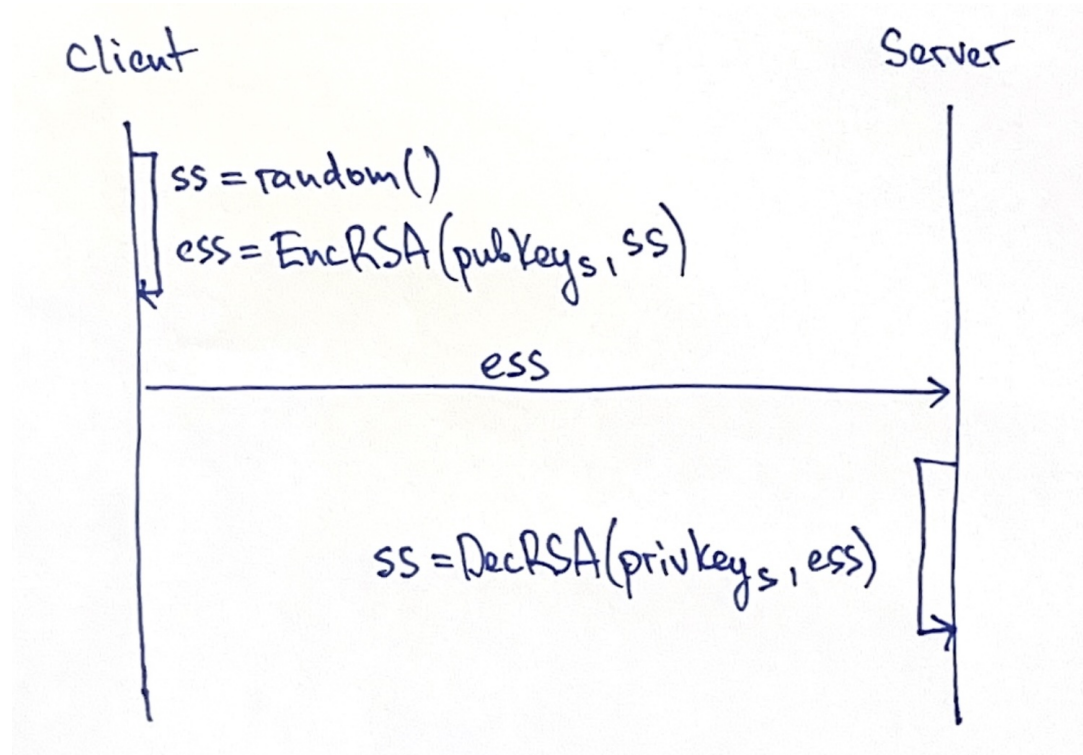 Client
Server
ss = random()
ess = EncRSA(pubkeys, ss)
ess
ss = DecRSA(privkeys, ess)